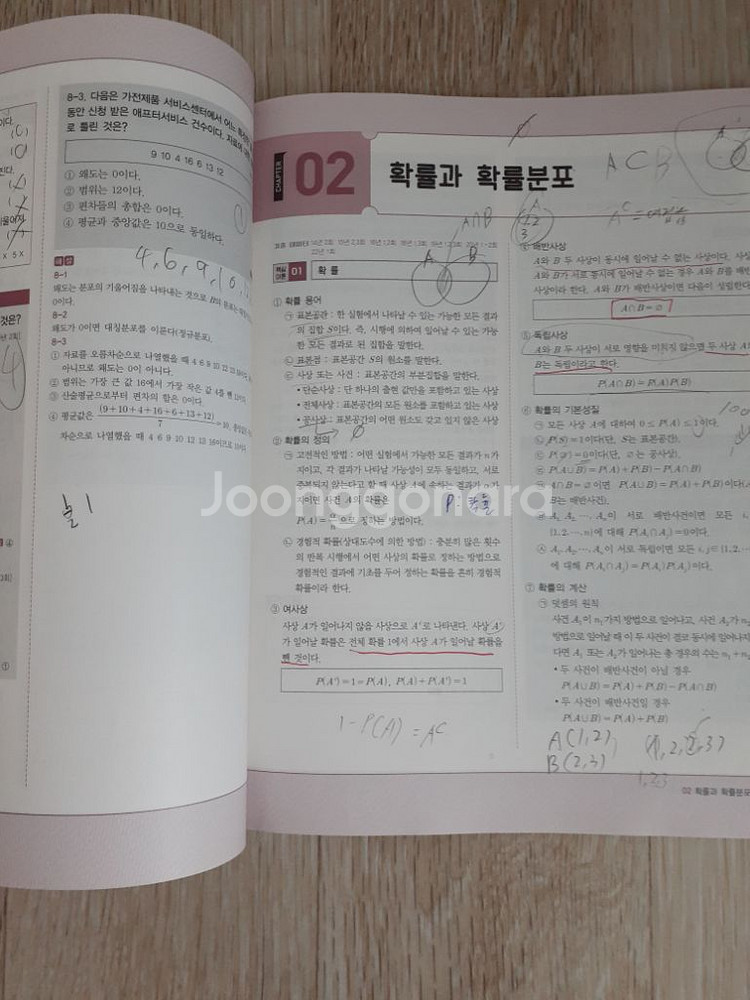 8-3. 다음은 가전제품 서비스센터에서 어느
동안 신청 받은 애프터서비스 건수이다. 자료에
로 틀린 것은?
9 10 4 16 6 13 12
① 왜도는 0이다.
② 범위는 12이다.
③ 편차들의 총합은 0이다.
④ 평균과 중앙값은 10으로 동일하다.
4, 6, 9, 10,
해설
8-1
왜도는 분포의 기울어짐을 나타내는 것으로
0이다.
8-2
왜도가 0이면 대칭분포를 이룬다(정규분포).
8-3
① 자료를 오름차순으로 나열했을 때 4 6 9 10 12 13
아니므로 왜도는 0이 아니다.
② 범위는 가장 큰 값 16에서 가장 작은 값 4를 뺀
③ 산술평균으로부터 편차의 합은 0이다.
④ 평균값은 (9+10+4+16+6+13+12)/7 =10,
차순으로 나열했을 때 4 6 9 10 12 13 16이므로
CHAPTER 02 확률과 확률분포
ACB
A∩B
A B
핵심이론 01 확 률
① 확률 용어
㉠ 표본공간 : 한 실험에서 나타날 수 있는 가능한 모든 결과
의 집합 S이다. 즉, 시행에 의하여 일어날 수 있는 가능
한 모든 결과로 된 집합을 말한다.
㉡ 표본점 : 표본공간 S의 원소를 말한다.
㉢ 사상 또는 사건 : 표본공간의 부분집합을 말한다.
• 단순사상 : 단 하나의 출현 값만을 포함하고 있는 사상
• 전체사상 : 표본공간의 모든 원소를 포함하고 있는 사상
• 공사상 : 표본공간의 어떤 원소도 갖고 있지 않은 사상
② 확률의 정의
㉠ 고전적인 방법 : 어떤 실험에서 가능한 모든 결과가 n가
지이고, 각 결과가 나타날 가능성이 모두 동일하고, 서로
중복되지 않는다고 할 때 사상 A에 속하는 결과가 a가
지이면 사건 A의 확률은
P : 확률
P(A)=a/n으로 정하는 방법이다.
㉡ 경험적 확률(상대도수에 의한 방법) : 충분히 많은 횟수
의 반복 시행에서 어떤 사상의 확률로 정하는 방법으로
경험적인 결과에 기초를 두어 정하는 확률을 흔히 경험적
확률이라 한다.
③ 여사상
사상 A가 일어나지 않음 사상으로 Aᶜ로 나타낸다. 사상 Aᶜ
가 일어날 확률은 전체 확률 1에서 사상 A가 일어날 확률을
뺀 것이다.
P(Aᶜ)=1-P(A), P(A)+P(Aᶜ)=1
1-P(A) = Aᶜ
④ 배반사상
A와 B 두 사상이 동시에 일어날 수 없는 사상이다.
A와 B가 서로 동시에 일어날 수 없는 경우 A와 B를 배반
사상이라 한다. A와 B가 배반사상이면 다음이 성립한다
A∩B=∅
⑤ 독립사상
A와 B 두 사상이 서로 영향을 미치지 않으면 두 사상 A
B는 독립이라고 한다.
P(A∩B)=P(A)P(B)
⑥ 확률의 기본성질
㉠ 모든 사상 A에 대하여 0≤P(A)≤1이다.
㉡ P(S)=1이다(단, S는 표본공간).
㉢ P(∅)=0이다(단, ∅는 공사상).
㉣ P(A∪B)=P(A)+P(B)-P(A∩B)
㉤ A∩B=∅이면 P(A∪B)=P(A)+P(B)이다
B는 배반사건).
㉥ A₁, A₂, …, Aₙ이 서로 배반사건이면 모든 i,
{1,2,…,n}에 대해 P(Aᵢ∩Aⱼ)=0이다.
㉦ A₁, A₂, …, Aₙ이 서로 독립이면 모든 i,j∈{1,2,…
에 대해 P(Aᵢ∩Aⱼ)=P(Aᵢ)P(Aⱼ)이다.
⑦ 확률의 계산
㉠ 덧셈의 원칙
사건 A₁이 n₁가지 방법으로 일어나고, 사건 A₂가 n₂
방법으로 일어날 때 이 두 사건이 결코 동시에 일어나지
다면 A₁ 또는 A₂가 일어나는 총 경우의 수는 n₁+n₂
• 두 사건이 배반사건이 아닐 경우
P(A∪B)=P(A)+P(B)-P(A∩B)
• 두 사건이 배반사건일 경우
P(A∪B)=P(A)+P(B)
A(1,2)
B(2,3)
(1,2,2,3)
1,2,3
02 확률과 확률분포
Joonggonara